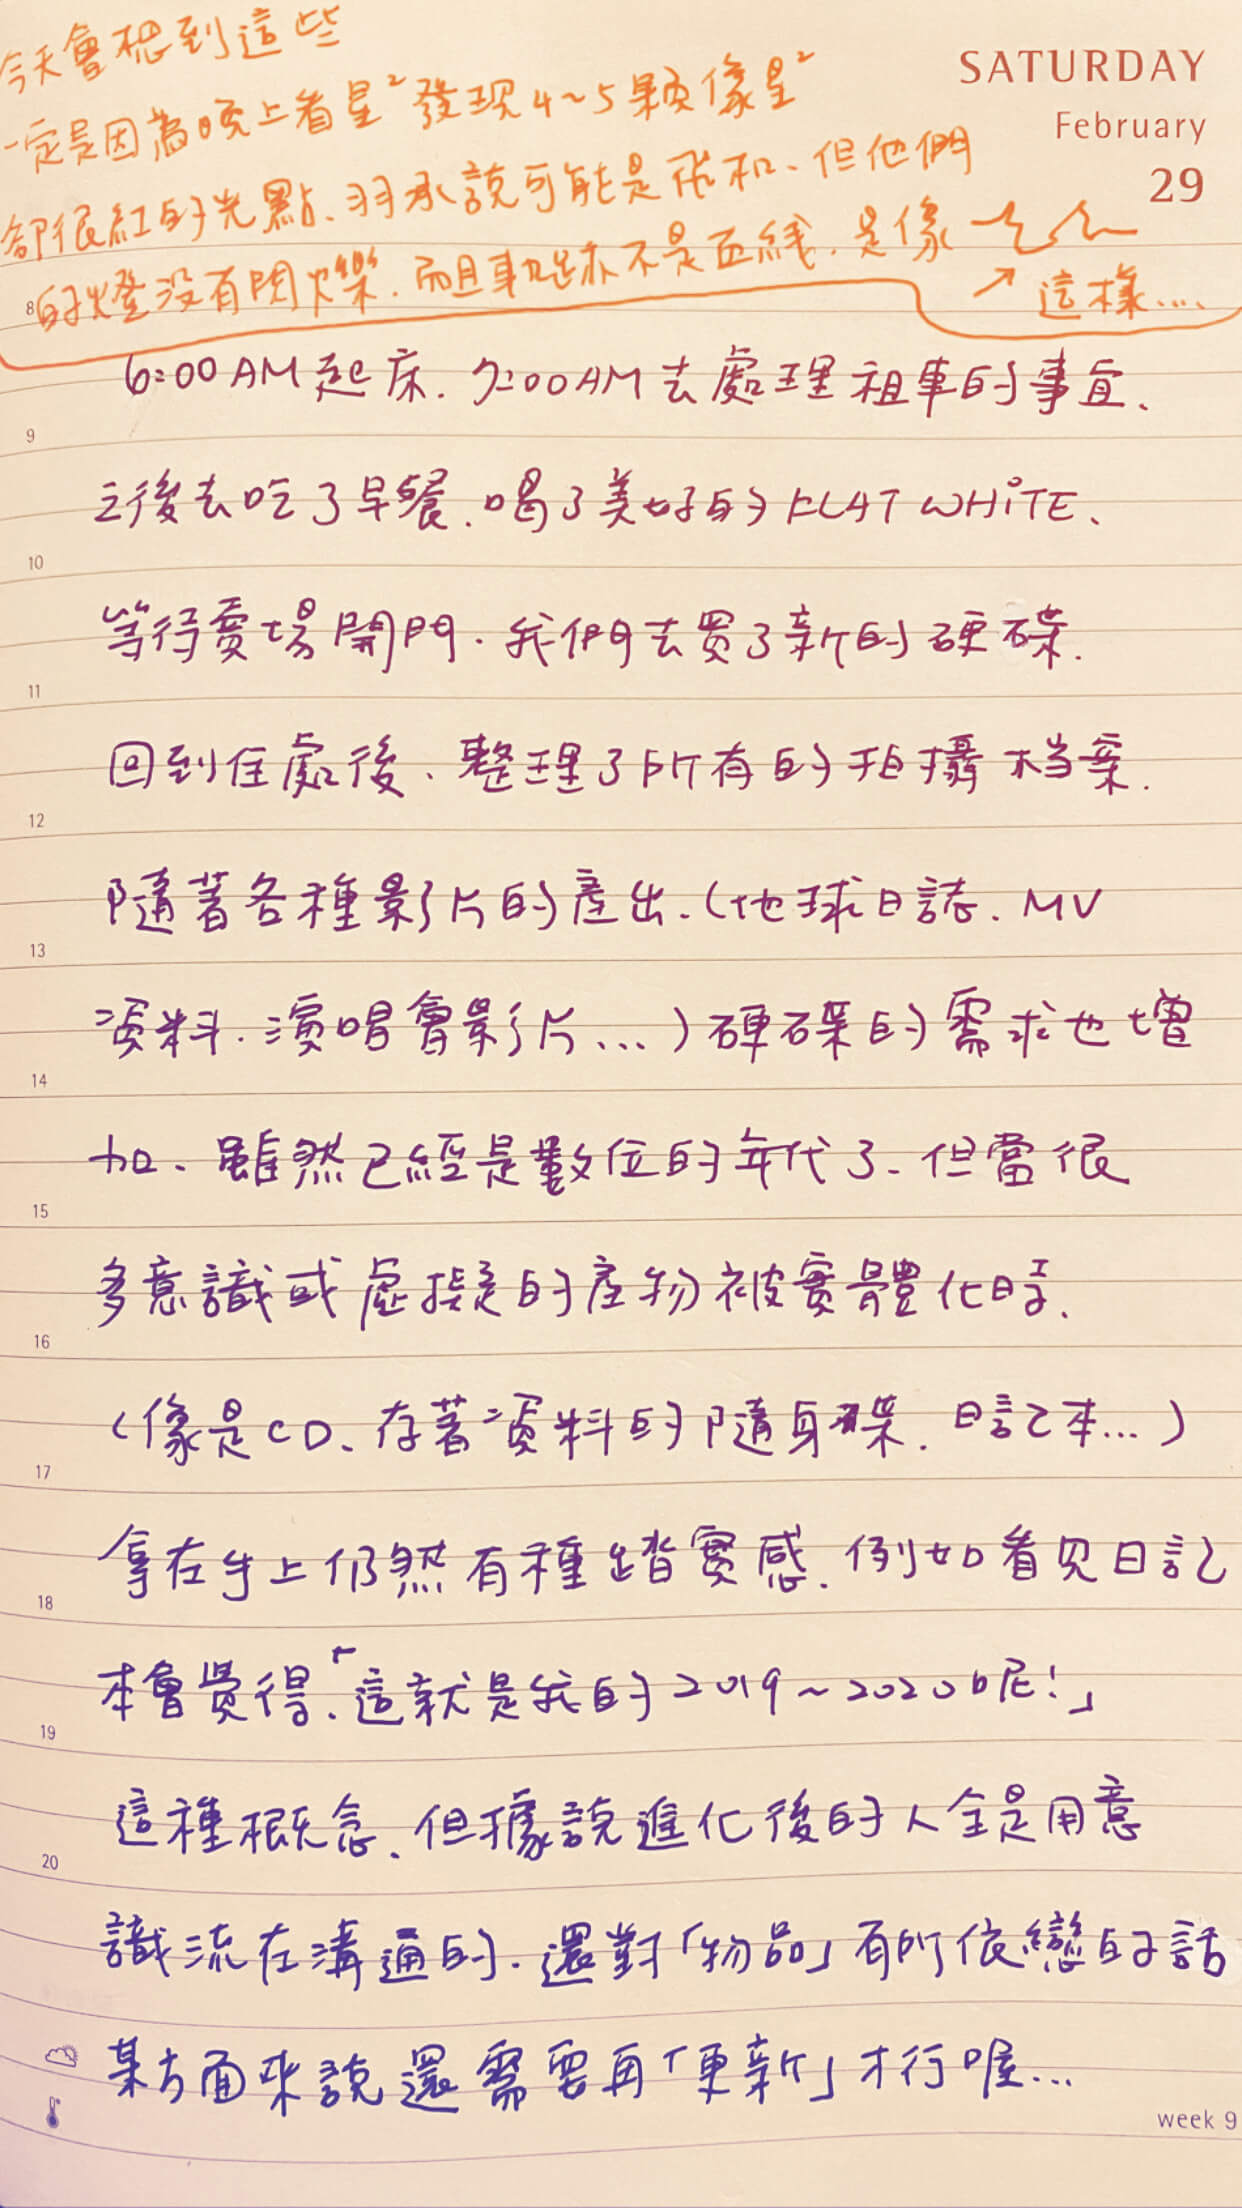 今天會想到這些
一定是因為晚上看星² 發現4~5顆像星²
SATURDAY
February
29
卻很紅的光點、羽承說可能是飛机、但他們
的燈沒有閃爍. 而且軌跡亦不是直线. 是像
這樣....
8
6:00AM起床. 7:00AM去處理租車的事宜、
9
之後去吃了早餐. 喝了美好的FLAT WHiTE、
10
等待賣場開門. 我們去買了新的硬碟.
11
回到住處後、整理了所有的拍攝档案.
12
隨著各種影片的產出.(地球日誌. MV
13
資料. 演唱會影片...)硬碟的需求也增
14
加、雖然已經是數位的年代了、但當很
15
多意識或虛擬的產物被實體化時、
16
(像是CD、存著資料的隨身碟. 日記本...)
17
拿在手上仍然有種踏實感. 例如看見日記
18
本會覺得、「這就是我的2019~2020呢!」
19
這種概念、但據說進化後的人全是用意
20
識流在溝通的. 還對「物品」有所依戀的話
某方面來說還需要再「更新」才行喔...
week 9